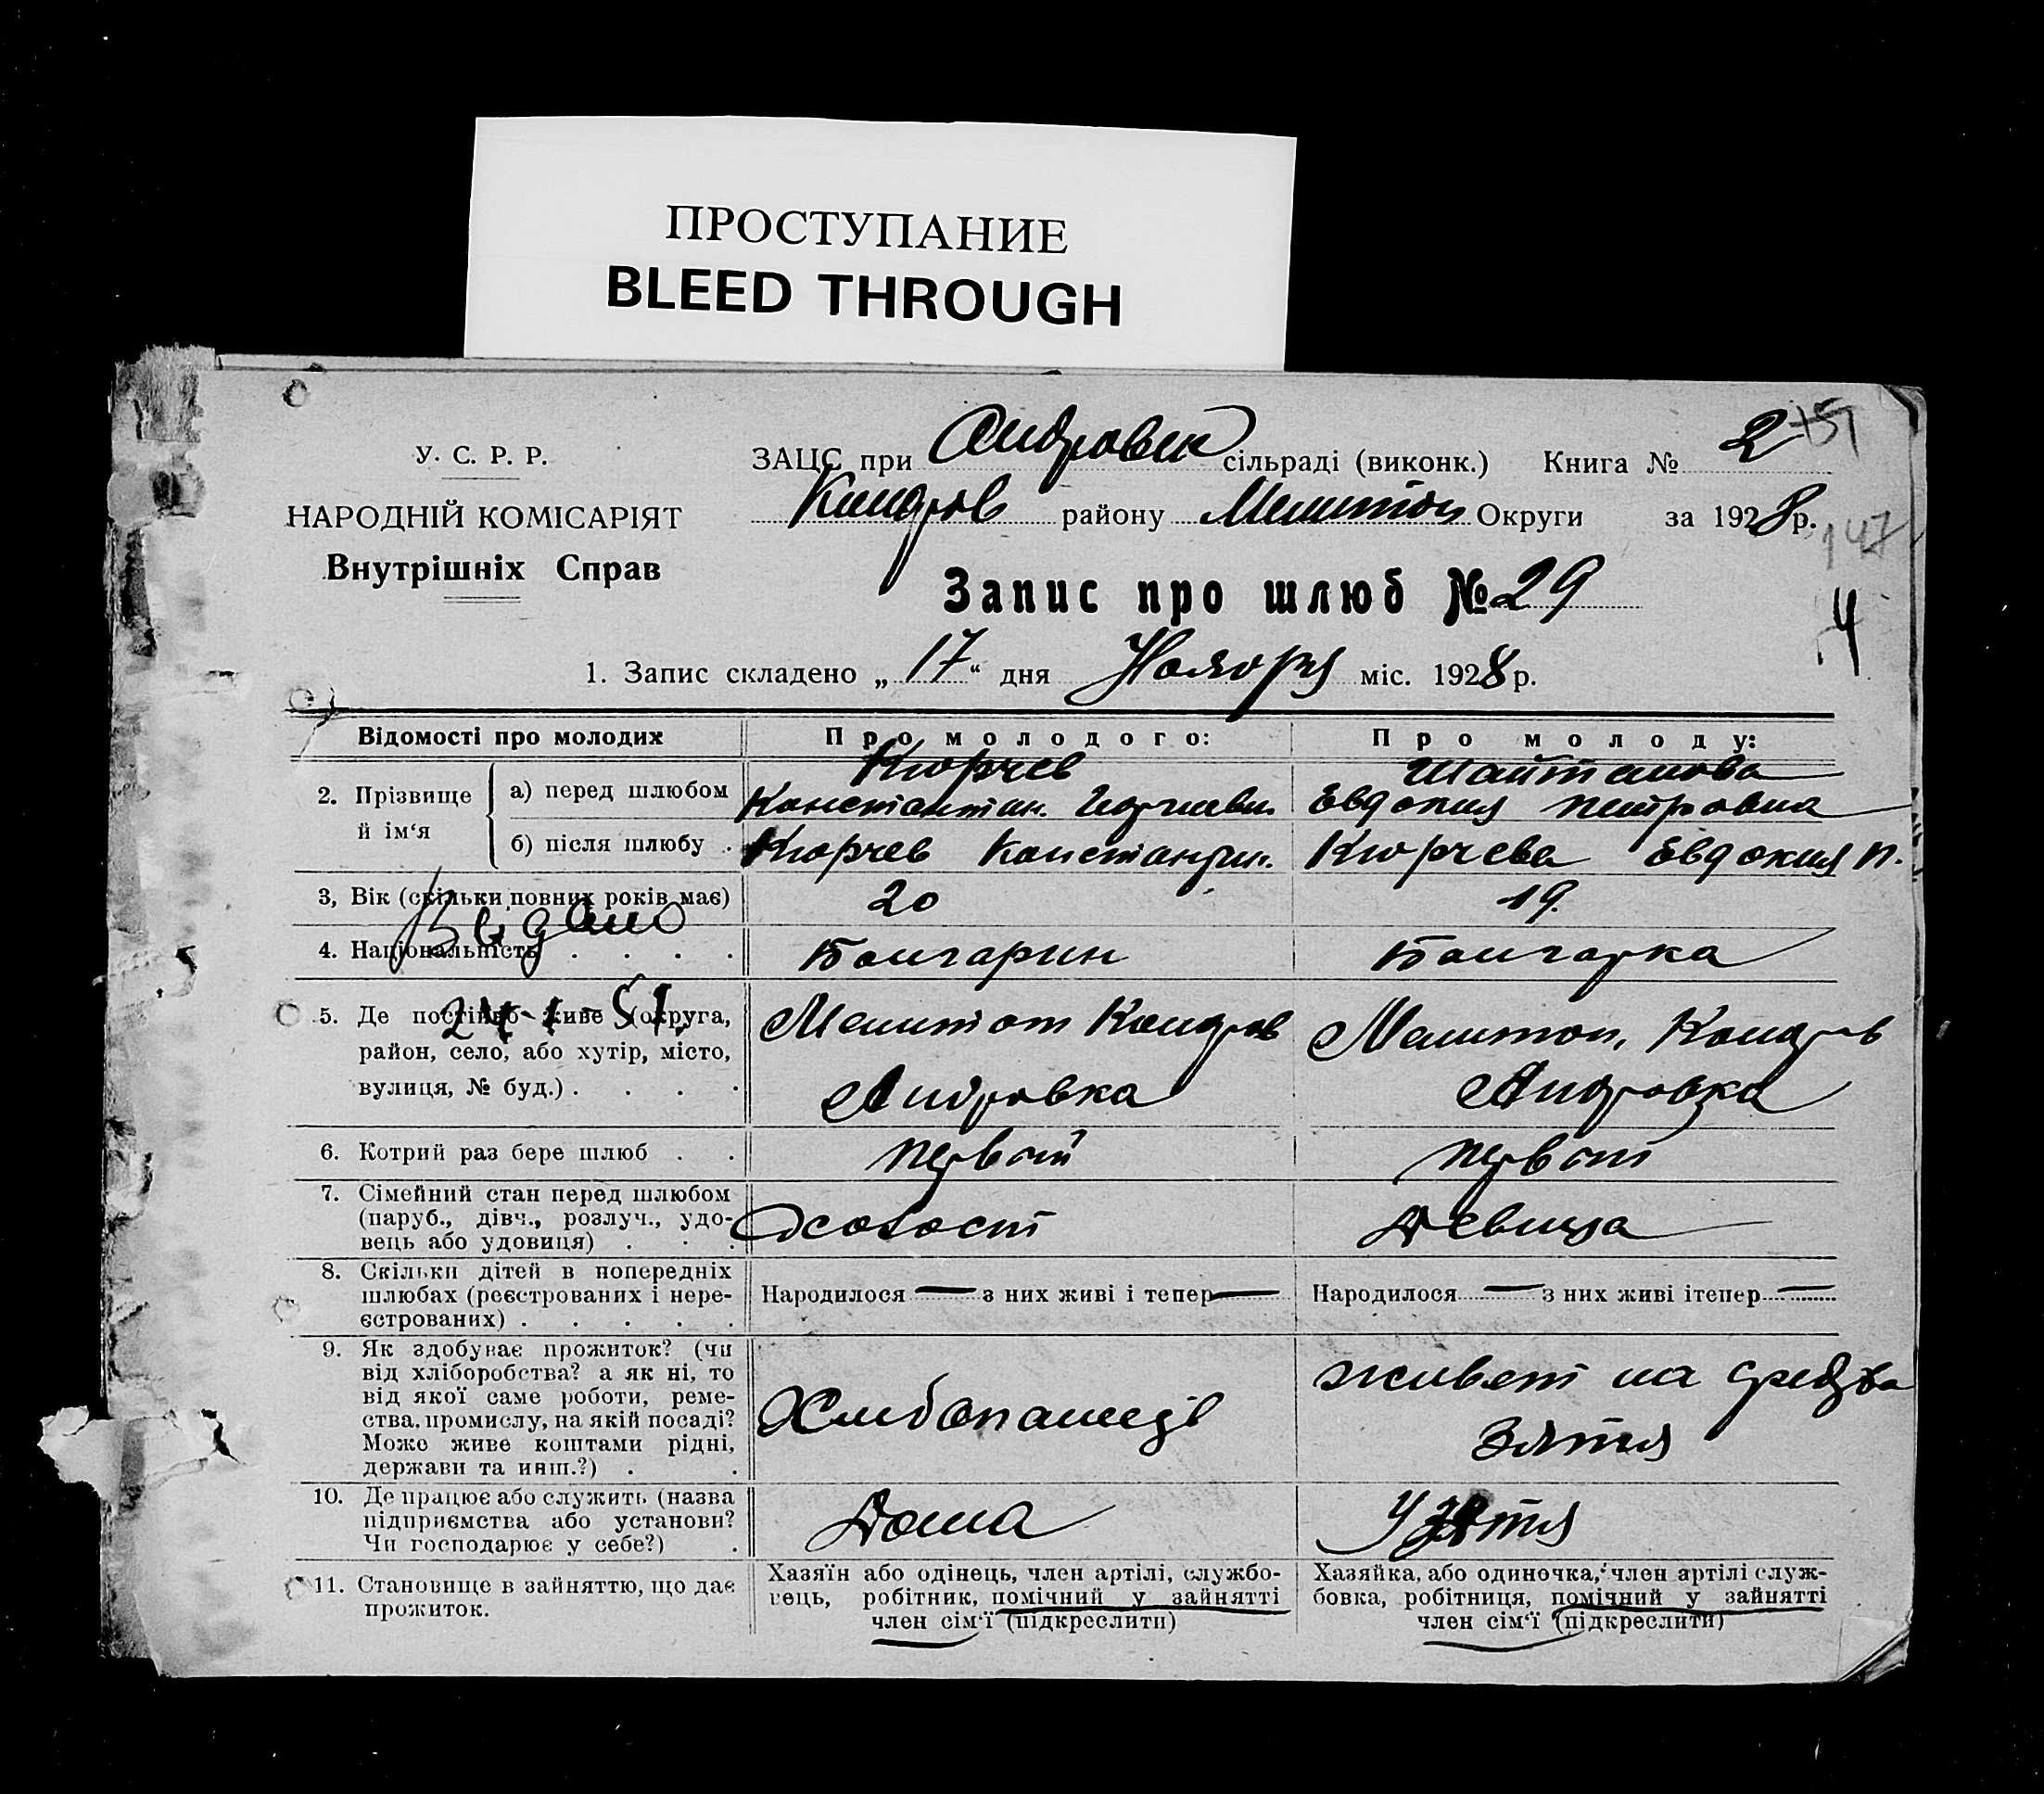 ПРОСТУПАНИЕ
BLEED THROUGH
У. С. Р. Р.
НАРОДНІЙ КОМІСАРІЯТ
Внутрішніх Справ
ЗАЦС при Андровск сільраді (виконк.) Книга № 2
району Мелитоп Округи за 1928 р.
147
Запис про шлюб № 29
4
1. Запис складено „ 17 “ дня Ноября міс. 1928 р.
Відомості про молодих
Про молодого:
Про молоду:
2. Прізвище й ім‘я
а) перед шлюбом
Кюрчев
Константин.
Шайтанова
Евдокия Петровна
б) після шлюбу .
Кюрчев Константин.
Кюрчева Евдокия П.
3, Вік (скільки повних років має)
20
19.
Видано
4. Національність . . . .
Болгарин
Болгарка
24-1-51.
5. Де постійно живе (округа,
район, село, або хутір, місто,
вулиця, № буд.) . . . .
Мелитоп
Андровка
Мелитоп.
Андровка
6. Котрий раз бере шлюб . .
первый
первый
7. Сімейний стан перед шлюбом
(паруб., дівч., розлуч., удо-
вець або удовиця) . . .
холост
девица
8. Скільки дітей в попередніх
шлюбах (реєстрованих і нере-
єстрованих) . . . . .
Народилося — з них живі і тепер —
Народилося — з них живі ітепер —
9. Як здобуває прожиток? (чи
від хліборобства? а як ні, то
від якої саме роботи, реме-
ства, промислу, на якій посаді?
Може живе коштами рідні,
держави та инш.?) . .
живет на средства
зятя
10. Де працює або служить (назва
підприємства або установи?
Чи господарює у себе?) .
Дома
У зятя
11. Становище в зайняттю, що дає
прожиток.
Хазяїн або одінець, член артілі, службо-
вець, робітник, помічний у зайнятті
член сім‘ї (підкреслити)
Хазяйка, або одиночка, член артілі служ-
бовка, робітниця, помічний у зайнятті
член сім‘ї (підкреслити)